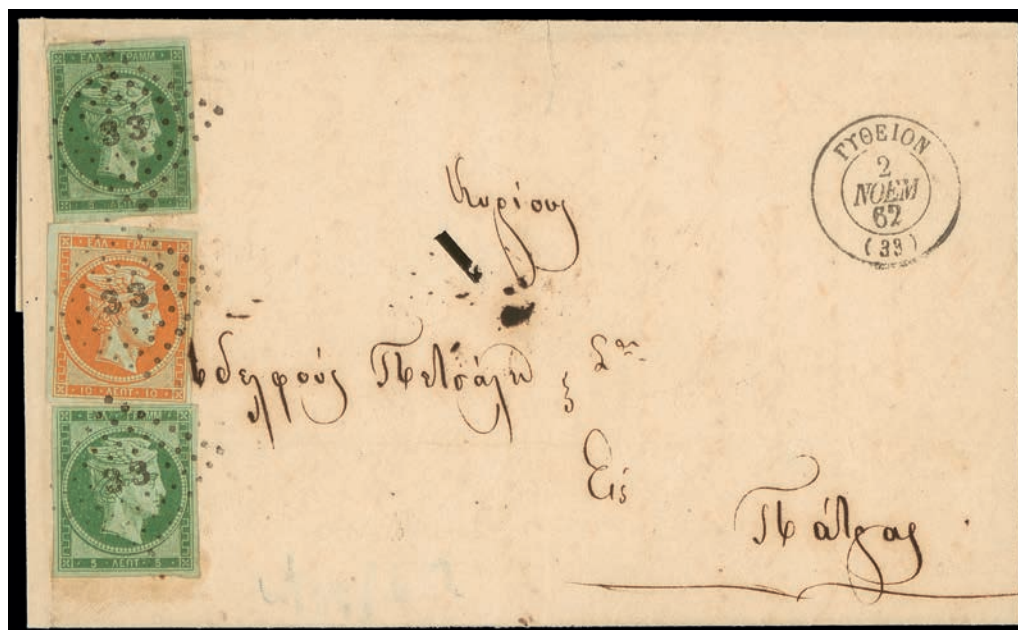 ΕΛΛ · ΓΡΑΜΜ
33
5 · ΛΕΠΤ · 5
ΕΛΛ · ΓΡΑΜΜ
33
10 · ΛΕΠΤ · 10
ΕΛΛ · ΓΡΑΜΜ
33
5 · ΛΕΠΤ · 5
ΓΥΘΕΙΟΝ
2
ΝΟΕΜ
62
(33)
Κυρίους
Αδελφούς
Εἰς
Πάτρας